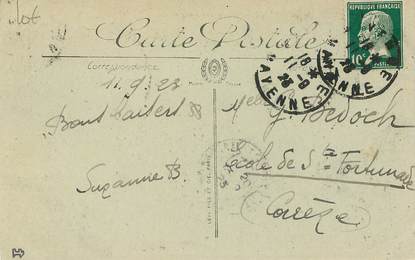 ilot
Carte Postale
Correspondance
11.9.23
Bons baisers
Suzanne B.
RÉPUBLIQUE FRANÇAISE
10c
MAYENNE
18 *
11 -9
23
MAYENNE
G. Bedoch
École de Ste Fortunade
Corrèze